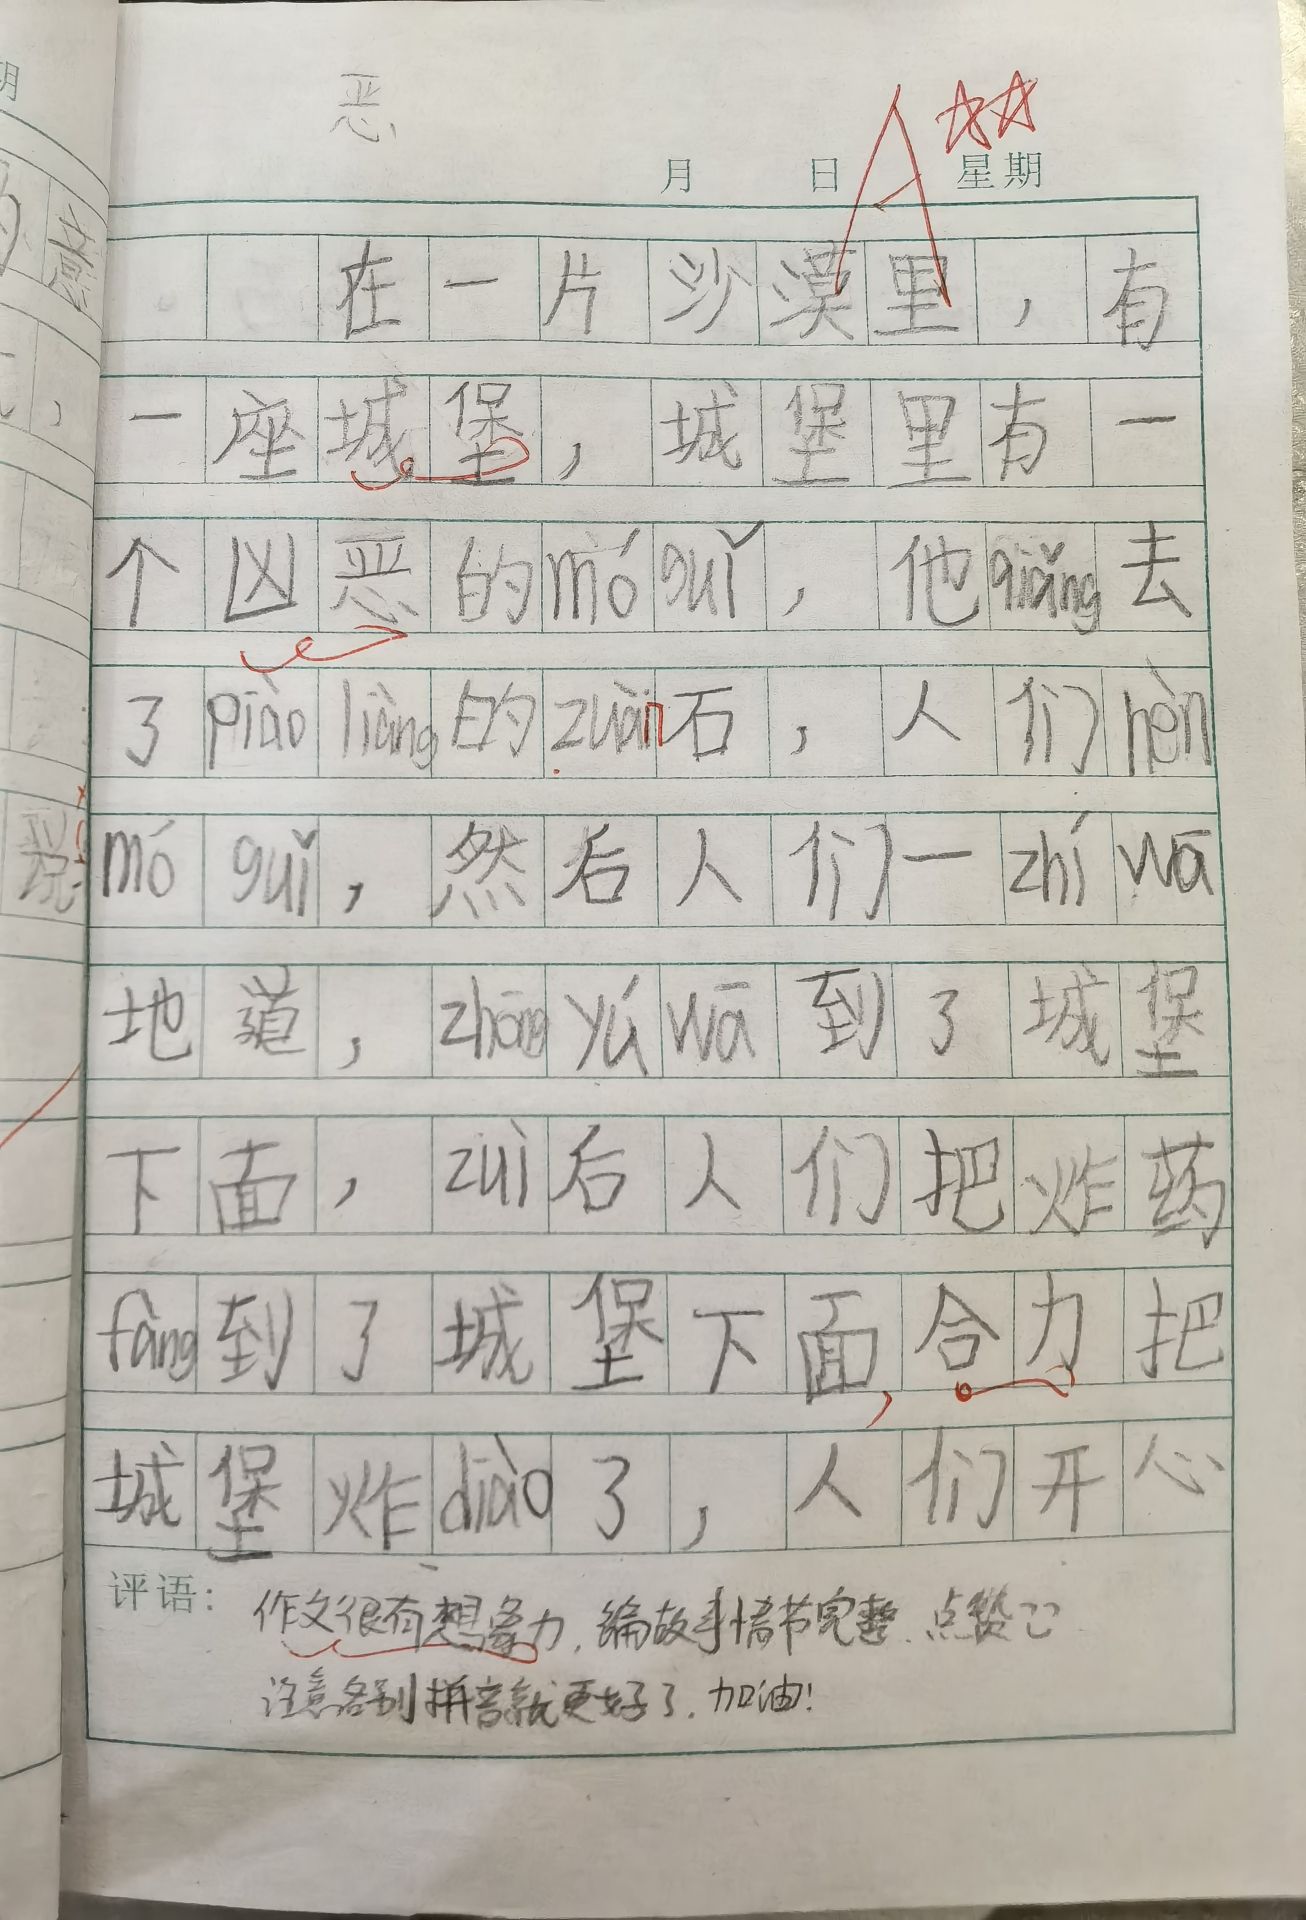 恶
月 日 星期
A
在一片沙漠里，有
一座城堡，城堡里有一
个凶恶的mó guǐ，他qiǎng去
了piào liàng的zuàn石，人们hèn
mó guǐ，然后人们一zhí wā
地道，zhōng yú wā到了城堡
下面，zuì后人们把炸药
fàng到了城堡下面，合力把
城堡炸diào了，人们开心
评语：作文很有想象力，编故事情节完整，点赞
注意各别拼音就更好了，加油！